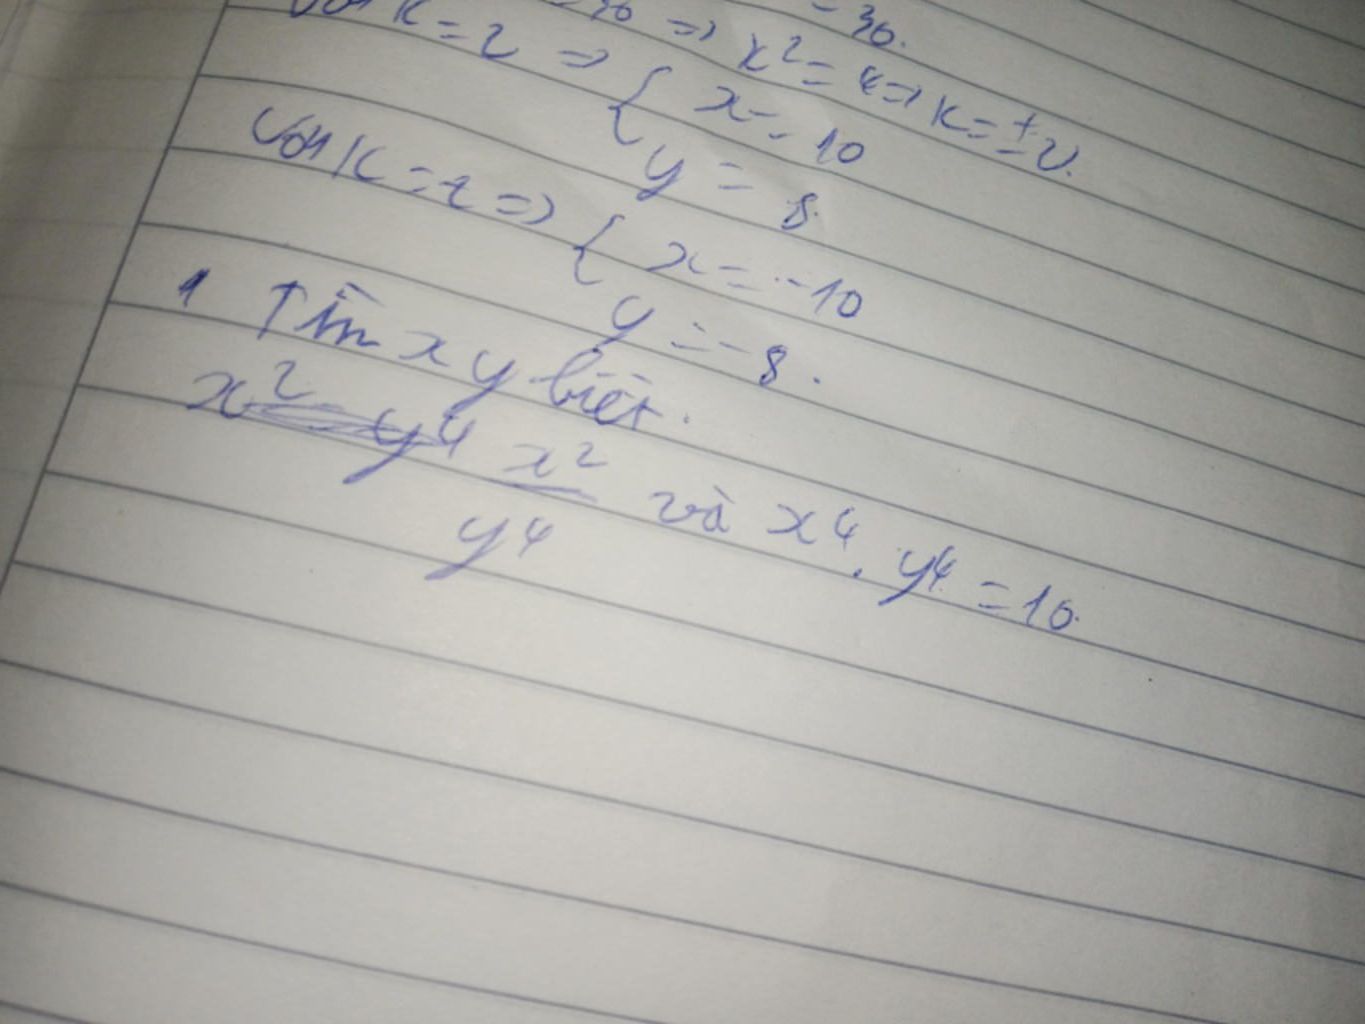 = 36.
=> k² = 4 => k = ± 2.
Với k = 2 => { x = 10
y = 8.
Với k = 2 => { x = -10
y = -8.
1 Tìm x y biết.
x² y⁴ x²
y⁴ và x⁴ . y⁴ = 16.